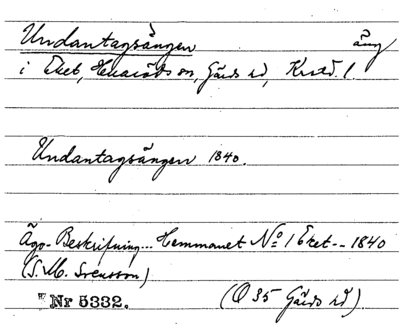 Undantagsängen äng
i Eket, Huaröds sn, Gärds hd, Krstd. l.
Undantagsängen 1840.
Äga-Beskrifning... Hemmanet No 1 Eket-- 1840
(S. M. Svensson)
Nr 5332. (O 35 Gärds hd).